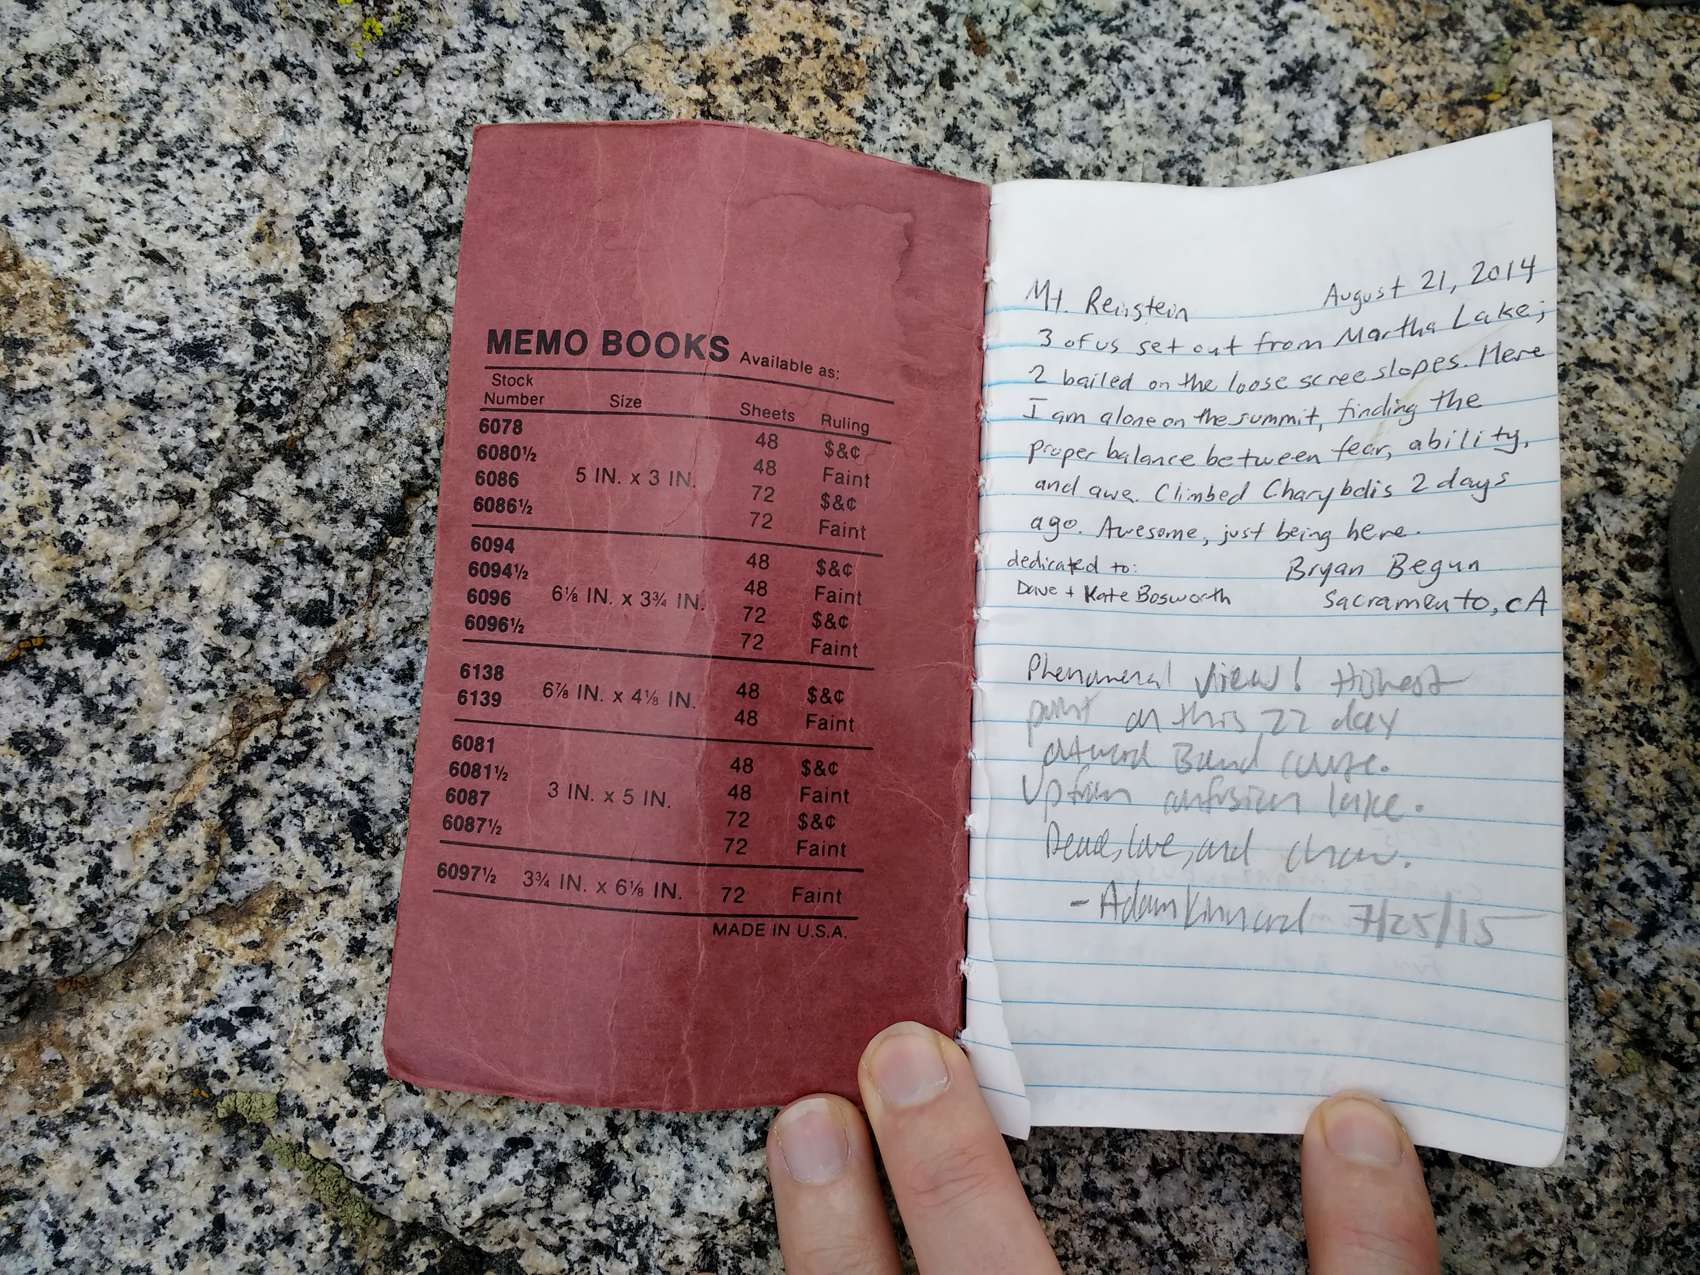 MEMO BOOKS Available as:
Stock Number Size Sheets Ruling
6078 48 $&¢
6080½ 48 Faint
6086 5 IN. x 3 IN. 72 $&¢
6086½ 72 Faint
6094 48 $&¢
6094½ 48 Faint
6096 6⅛ IN. x 3¾ IN. 72 $&¢
6096½ 72 Faint
6138 48 $&¢
6139 6⅞ IN. x 4⅛ IN. 48 Faint
6081 48 $&¢
6081½ 48 Faint
6087 3 IN. x 5 IN. 72 $&¢
6087½ 72 Faint
6097½ 3¾ IN. x 6⅛ IN. 72 Faint
MADE IN U.S.A.
Mt. Reinstein August 21, 2014
3 of us set out from Martha Lake;
2 bailed on the loose scree slopes. Here
I am alone on the summit, finding the
proper balance between fear, ability,
and awe. Climbed Charybdis 2 days
ago. Awesome, just being here.
dedicated to: Bryan Begun
Dave + Kate Bosworth Sacramento, CA
Phenomenal view! Highest
point on this 22 day
Outward Bound course.
Up from
Peace, love, and
- Adam Kinnard 7/25/15